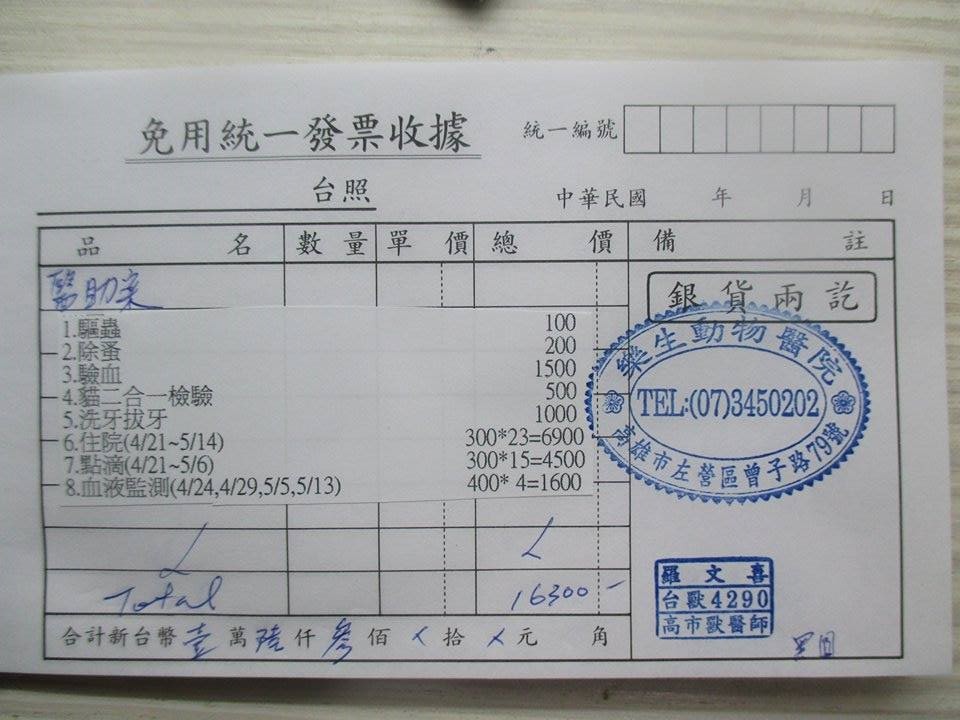 免用統一發票收據
統一編號
台照
中華民國 年 月 日
品 名 數 量 單 價 總 價 備 註
醫助案
銀貨兩訖
1.驅蟲 100
2.除蚤 200
3.驗血 1500
4.貓二合一檢驗 500
5.洗牙拔牙 1000
6.住院(4/21~5/14) 300*23=6900
7.點滴(4/21~5/6) 300*15=4500
8.血液監測(4/24,4/29,5/5,5/13) 400* 4=1600
樂生動物醫院
TEL:(07)3450202
高雄市左營區曾子路79號
Total 16300-
羅文喜
台獸4290
高市獸醫師
合計新台幣壹萬陸仟參佰 拾 元 角